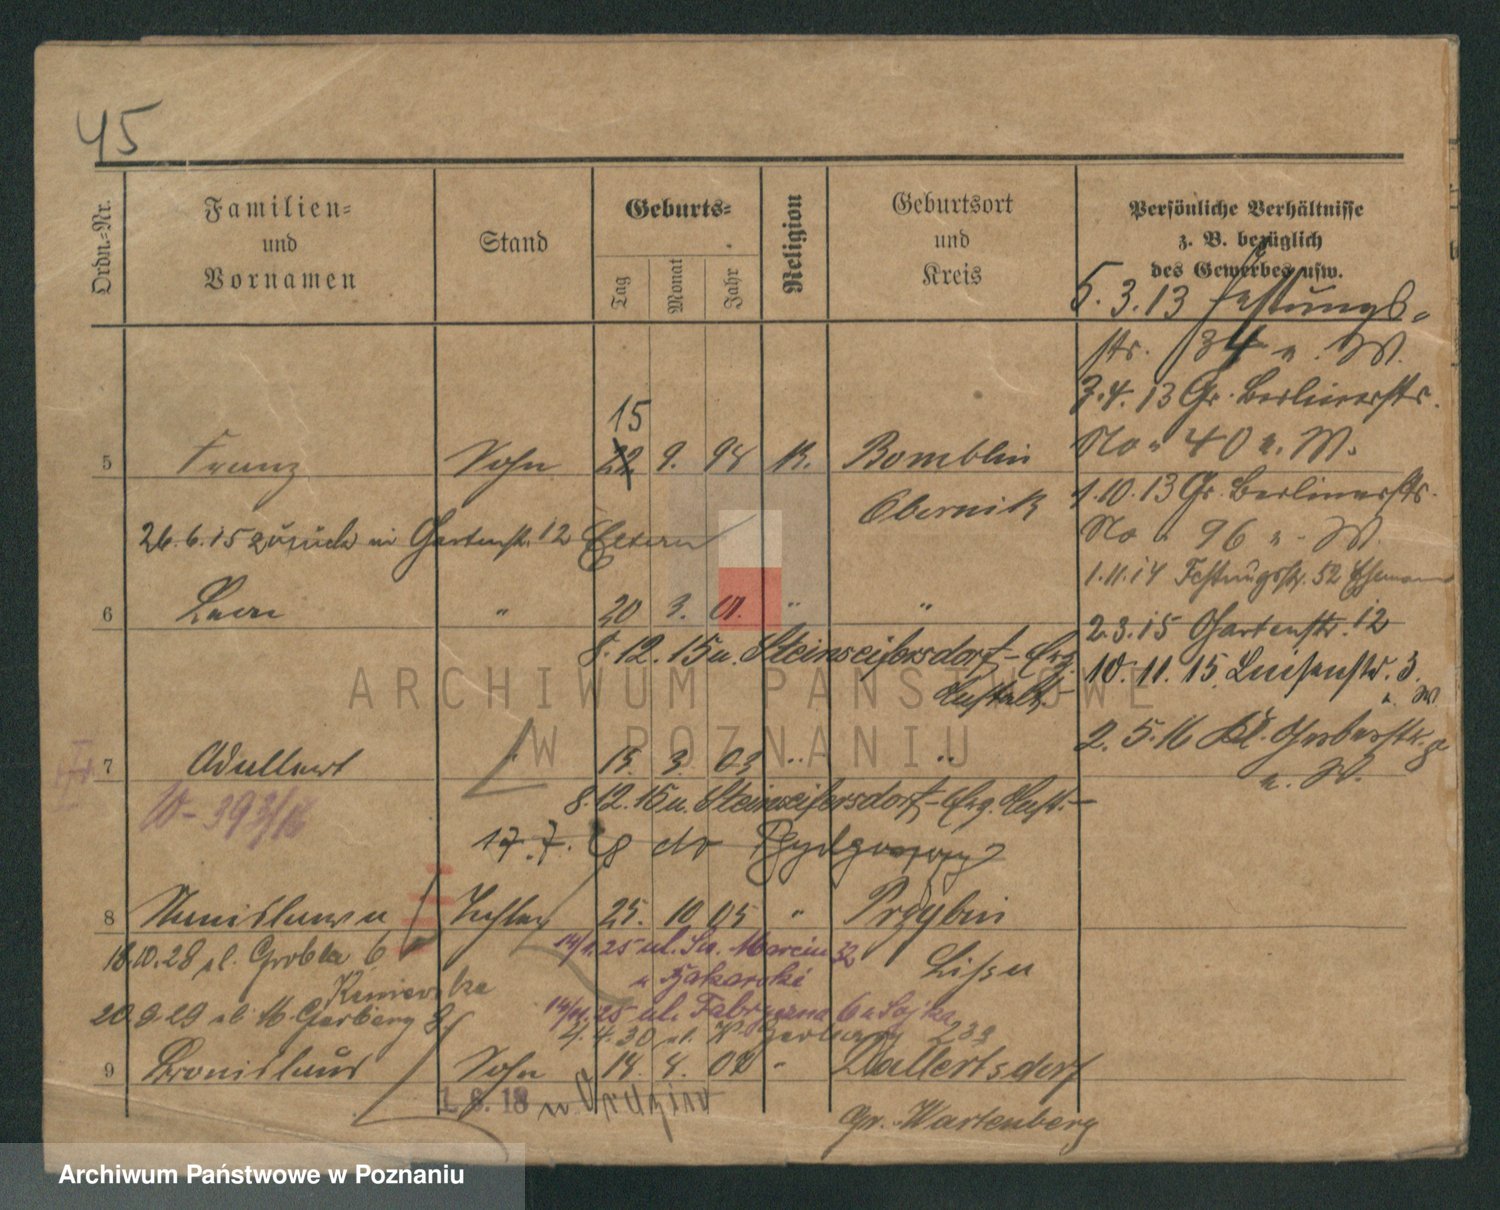 45
Ordn.-Nr.
Familien-
und
Vornamen
Stand
Geburts-
Tag
Monat
Jahr
Religion
Geburtsort
und
Kreis
Persönliche Verhältnisse
z. B. bezüglich
des Gewerbes usw.
5.3.13 Festungs-
str. 34 W.
3.4.13 Gr. Berlinerstr.
No 40 W.
1.10.13 Gr. Berlinerstr.
No 96 W.
1.11.14 Festungsstr. 52
2.3.15 Gartenstr. 12
10.11.15 Luisenstr. 3
W
2.5.16 Kl. Gerberstr. 9
W.
15
5 Franz Sohn 22 9. 98 K. Bomblin
Obernik
26.6.15 zurück in Gartenstr. 12 Eltern
6 Leon " 20 3. 01. " "
8.12.15 u. Steinseifersdorf - Erz.
Anstalt -
7 Adalbert 15. 3. 03 " "
10-393/16
8.12.15 u. Steinseifersdorf - Erz. Anst. -
17.7.18 do Bydgoszczy
8 Stanislawa Tochter 25. 10 05 " Przybin
Lissa
18.10.28 ul. Grobla 6
14/1.25 ul. Sw. Marcin 32
20.9.29 ul.
14/11.25 ul. Fabryczna 6 u Sojka
4.4.30 ul. 23a
9 Bronislaus Sohn 14. 4. 08 " Dallertsdorf
Gr. Wartenberg
1. 8. 18
ARCHIWUM PAŃSTWOWE
W POZNANIU
Archiwum Państwowe w Poznaniu